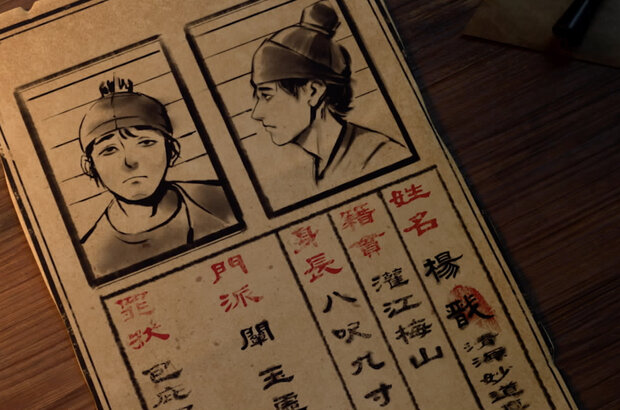 姓名 楊戩
清源妙道
籍貫 灌江梅山
身長 八呎九寸
門派 闡玉
罪狀